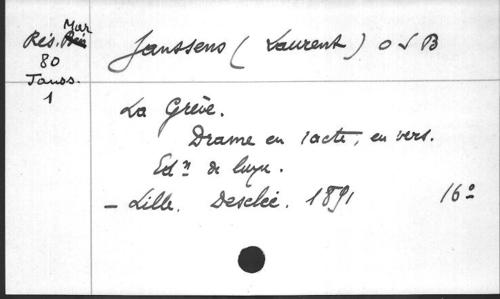 Rés. Mar
80
Janss.
1
Janssens (Laurent) O S B
La Grève.
Drame en 1 acte, en vers.
Edn de luxe.
- Lille. Desclée. 1891 16º